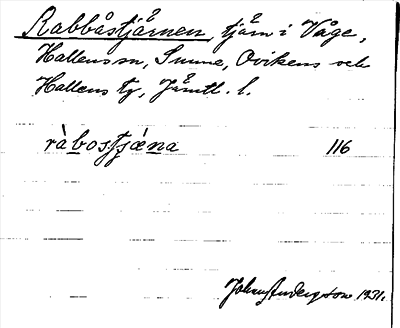 Rabbåstjärnen, tjärn i Våge,
Hallens sn, Sunne, Ovikens och
Hallens tg, Jämtl. l.
ràbostjǽna 116
Johan Anderson 1931.